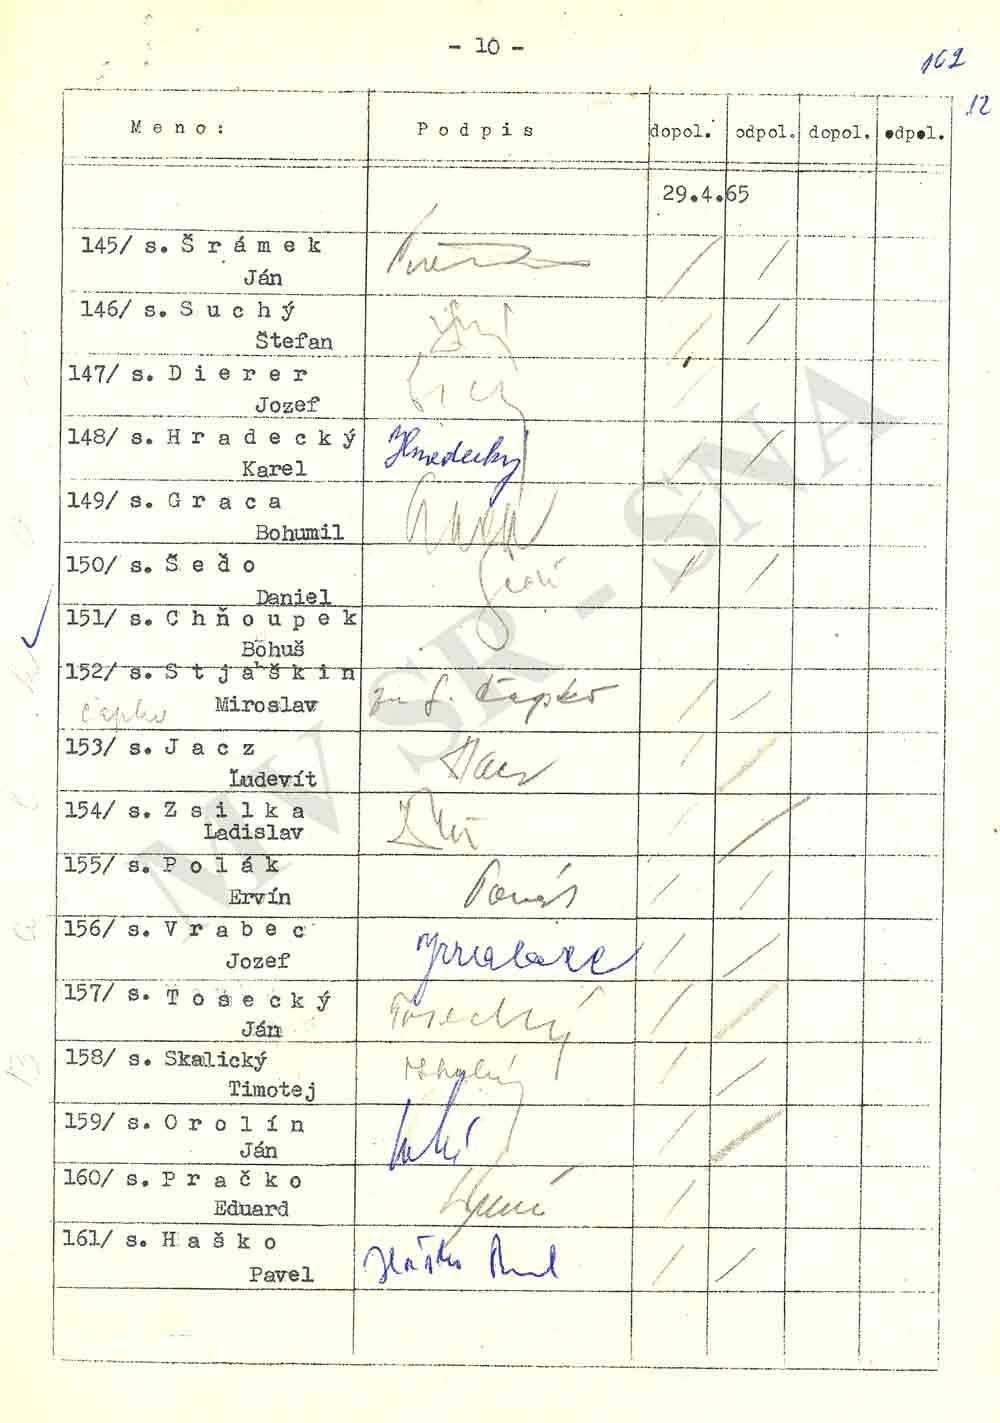 - 10 -
162
12
Meno: Podpis dopol. odpol. dopol. odpol.
29.4.65
145/ s. Šrámek
Ján
146/ s. Suchý
Štefan
147/ s. Dierer
Jozef
148/ s. Hradecký Hradecký
Karel
149/ s. Graca
Bohumil
150/ s. Šeďo
Daniel
151/ s. Chňoupek
Bohuš
152/ s. Stjaškin
Čapko Miroslav za s. Čapko
153/ s. Jacz Jacz
Ľudevít
154/ s. Zsilka
Ladislav
155/ s. Polák
Ervín
156/ s. Vrabec
Jozef
157/ s. Tosecký Tosecký
Ján
158/ s. Skalický
Timotej
159/ s. Orolín
Ján
160/ s. Pračko
Eduard
161/ s. Haško Haško Pavel
Pavel
MV SR - SNA